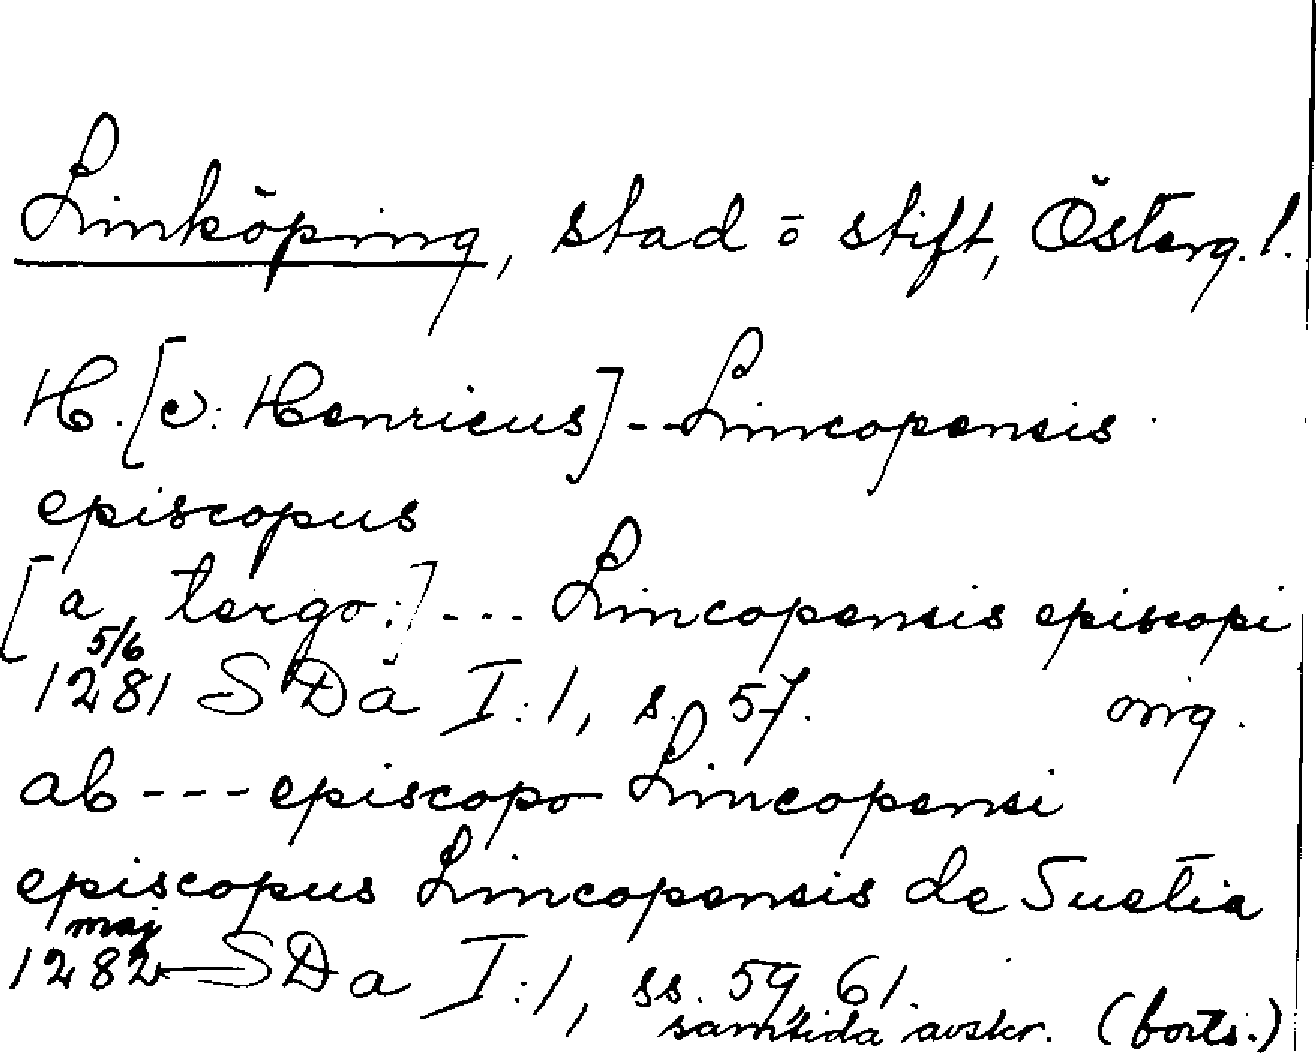 Linköping, stad o stift, Österg. l.
H. [ɔ: Henricus] -- Lincopensis
episcopus
[a tergo:] --- Lincopensis episcopi
5/6
1281 SDa I:1, s. 57. orig.
ab --- episcopo Lincopensi
episcopus Lincopensis de Suetia
maj
1282 SDa I:1, ss. 59, 61.
samtida avskr. (forts.)